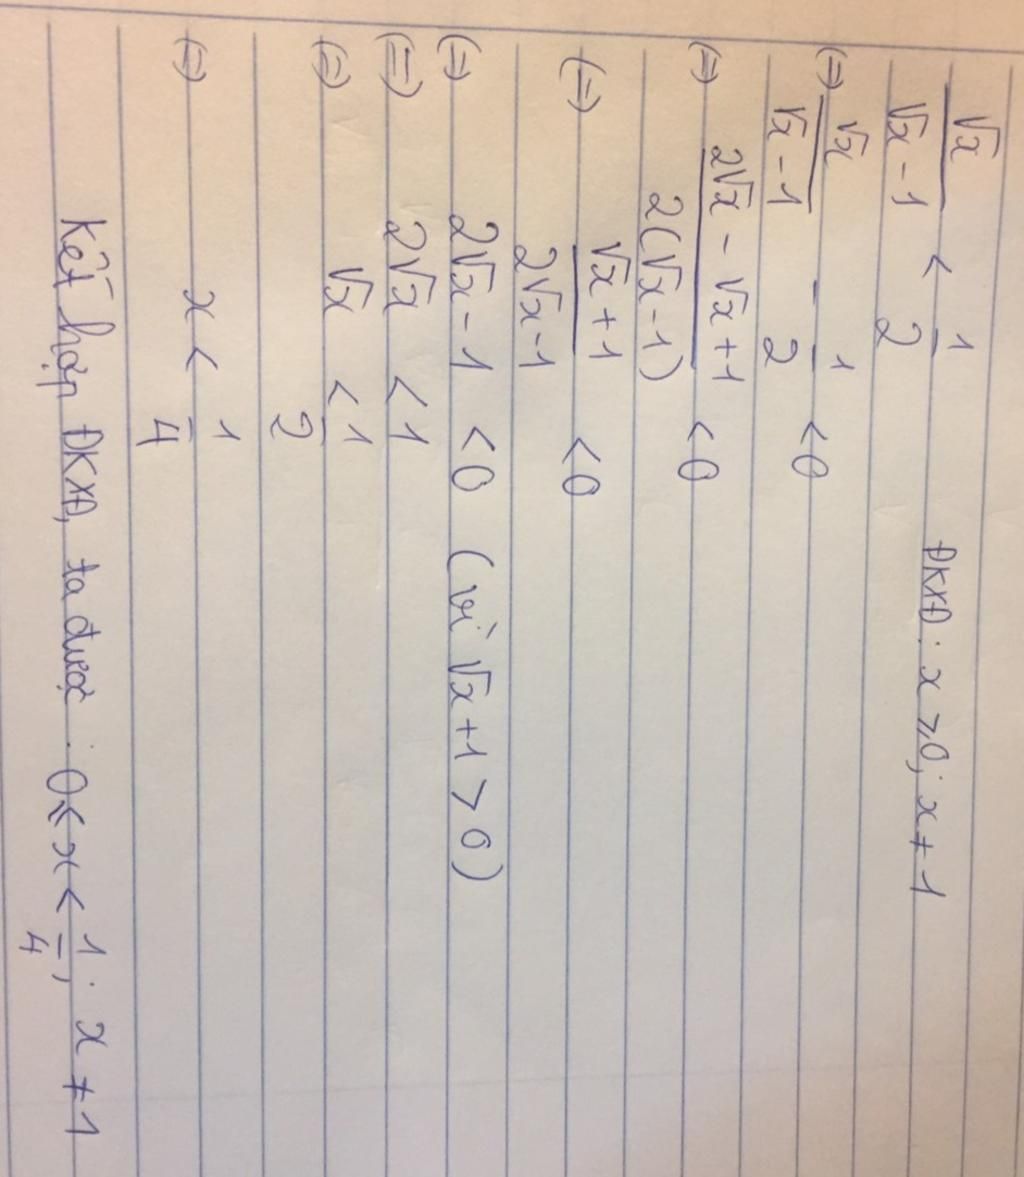 √x/(√x - 1) < 1/2 ĐKXĐ: x ≥ 0; x ≠ 1
(=) √x/(√x - 1) - 1/2 < 0
(=) (2√x - √x + 1)/(2(√x - 1)) < 0
(=) (√x + 1)/(2√x - 1) < 0
(=) 2√x - 1 < 0 (vì √x + 1 > 0)
(=) 2√x < 1
(=) √x < 1/2
(=) x < 1/4
Kết hợp ĐKXĐ, ta được: 0 ≤ x < 1/4; x ≠ 1